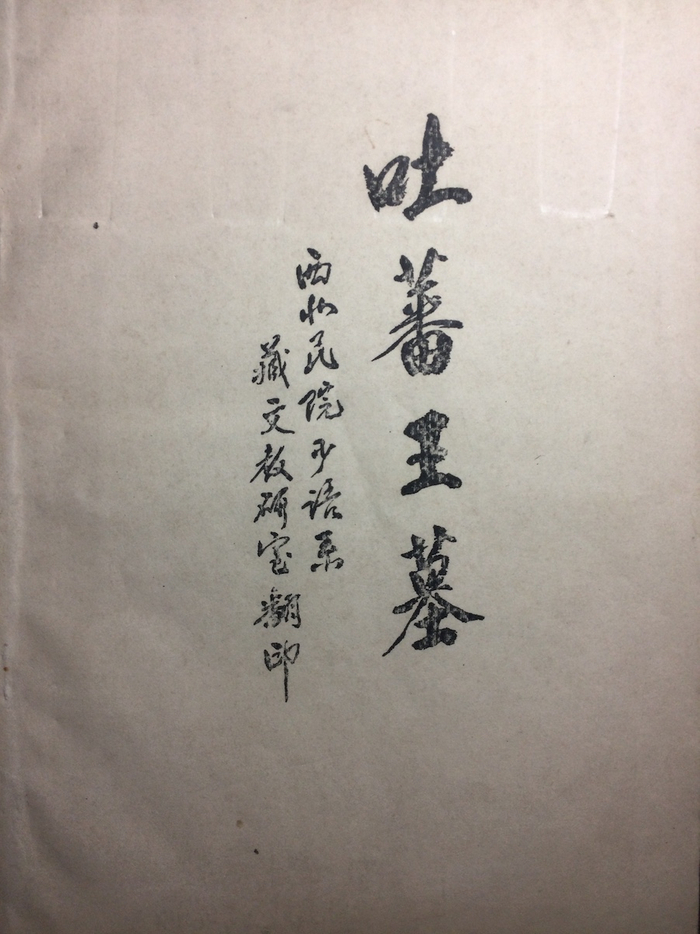 吐蕃王墓
西北民院少语系
藏文教研室翻印